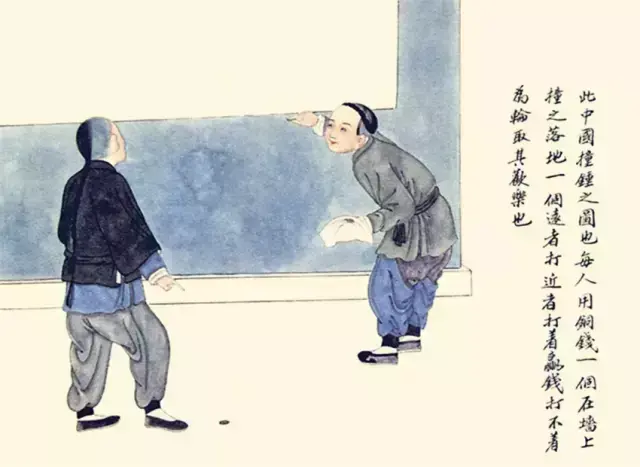 此中國撞鍾之圖也每人用銅錢一個在墻上
撞之落地一個遠者打近者打着贏錢打不着
為輪取其歡樂也